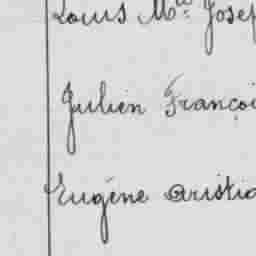 Louis Mie Josep
Julien Françoi
Eugène Aristid